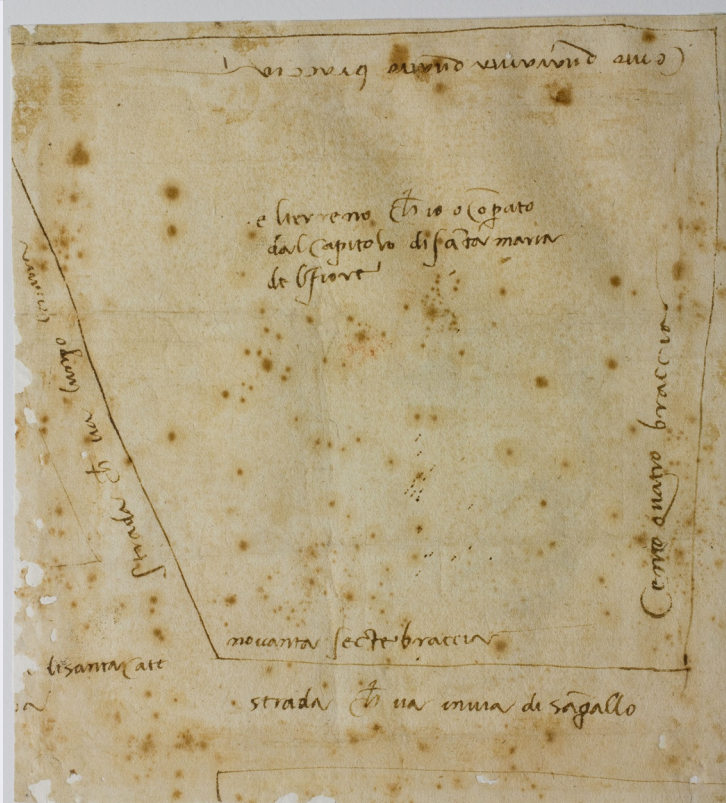 Cento quaranta quatro braccia
e lterreno ch io o cõperato
dal capitolo di sãta maria
del fiore
strada ch va lungo
Cento quatro braccia
novanta secte braccia
di santa cate
strada ch va in via di sãgallo